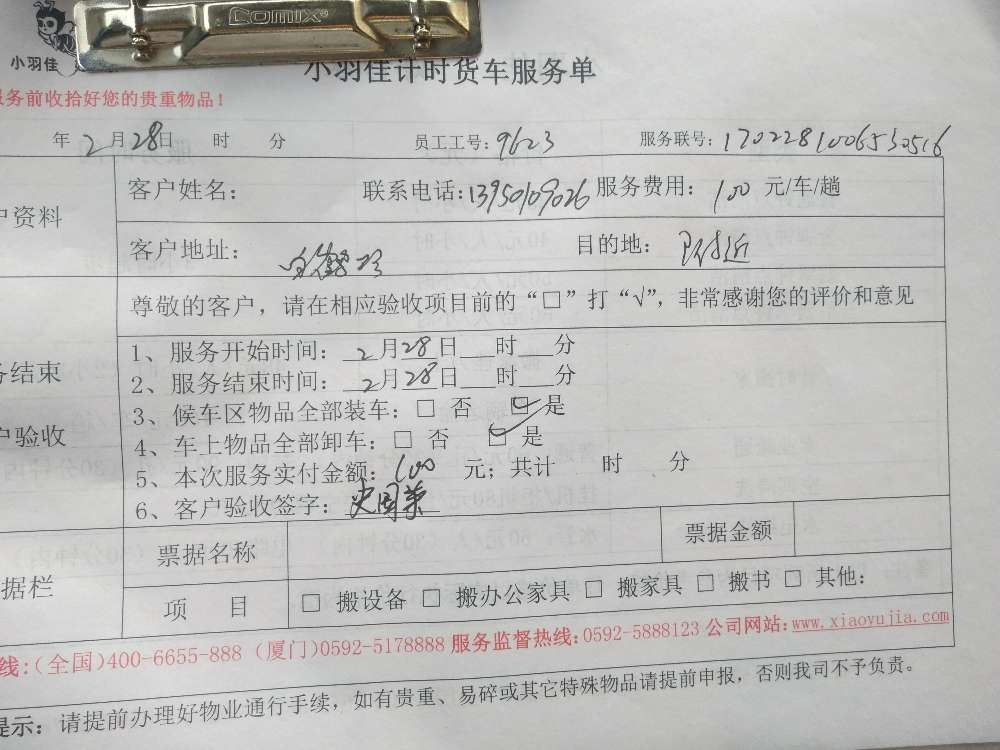 COMIX
小羽佳
小羽佳计时货车服务单
服务前收拾好您的贵重物品！
年2月28日 时 分 员工工号：9623 服务联号：1702281006530516
户资料
客户姓名： 联系电话：13950109026 服务费用：100 元/车/趟
客户地址： 目的地：附近
尊敬的客户，请在相应验收项目前的“□”打“√”，非常感谢您的评价和意见
务结束
户验收
1、服务开始时间：2月28日___时___分
2、服务结束时间：2月28日___时___分
3、候车区物品全部装车：□ 否 ☑ 是
4、车上物品全部卸车：□ 否 ☑ 是
5、本次服务实付金额：100 元；共计 时 分
6、客户验收签字：史国荣
据栏
票据名称 票据金额
项 目 □ 搬设备 □ 搬办公家具 □ 搬家具 □ 搬书 □ 其他：
线：（全国）400-6655-888（厦门）0592-5178888 服务监督热线：0592-5888123 公司网站：www.xiaoyujia.com
提示：请提前办理好物业通行手续，如有贵重、易碎或其它特殊物品请提前申报，否则我司不予负责。